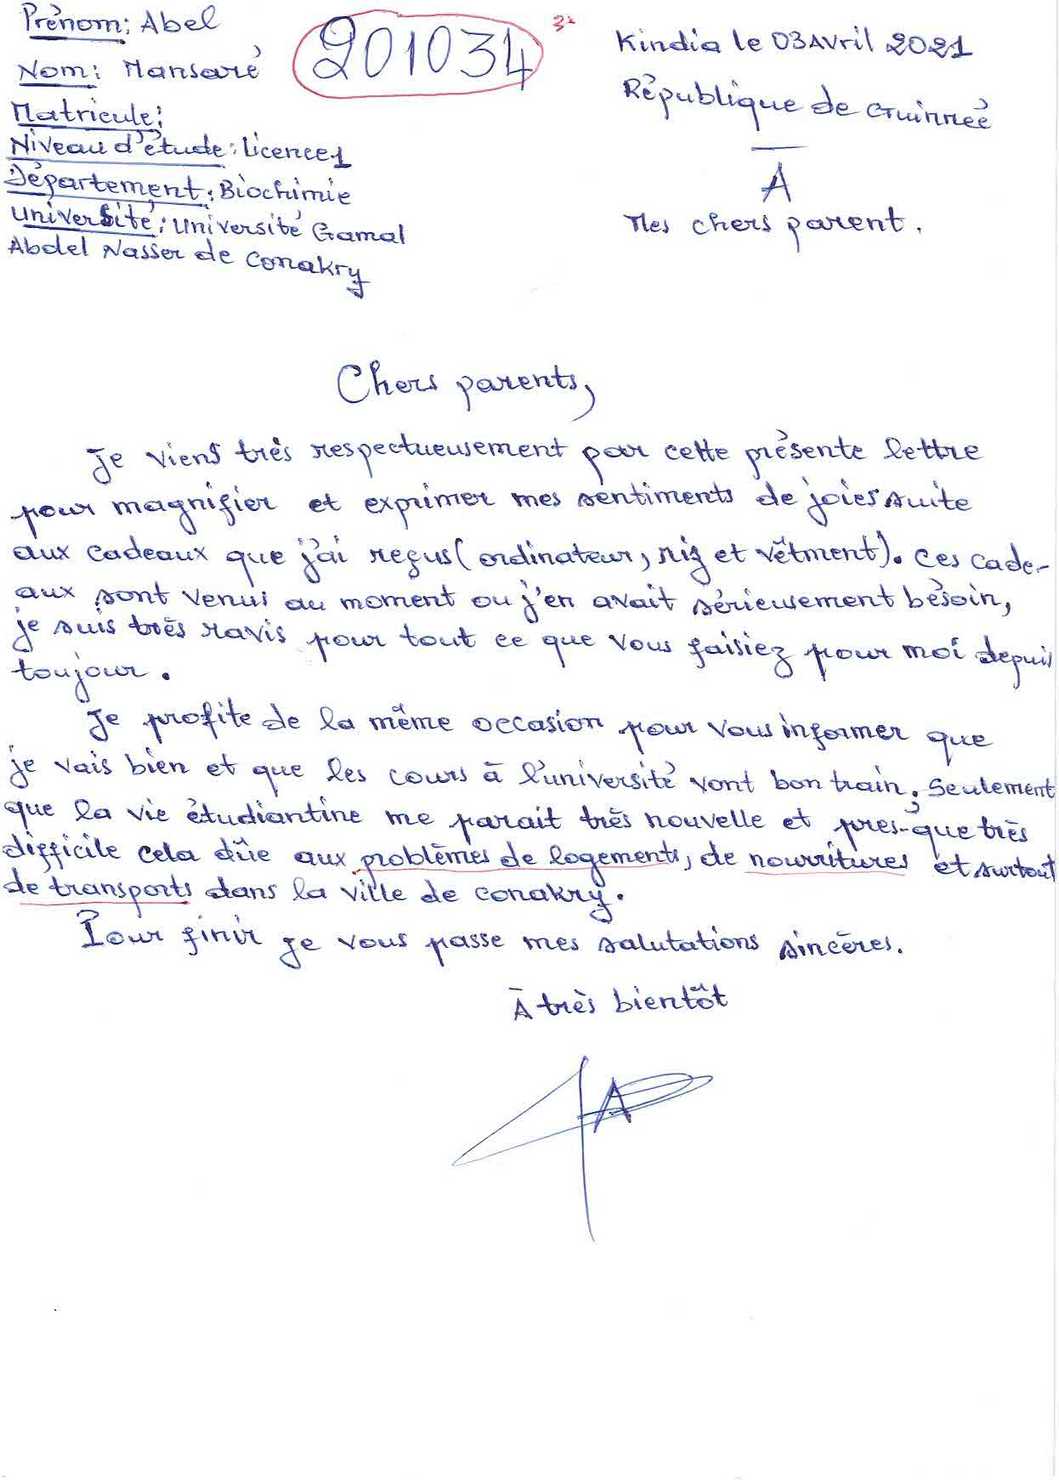 Prénom: Abel
Nom: Mansaré
Matricule:
Niveau d'étude: Licence1
Département: Biochimie
Université: Université Gamal
Abdel Nasser de Conakry
201034
Kindia le 03 Avril 2021
République de Guinneé
A
Mes chers parent.
Chers parents,
Je viens très respectueusement par cette présente lettre
pour magnifier et exprimer mes sentiments de joies suite
aux cadeaux que j'ai reçus (ordinateur, riz et vêtment). Ces cade-
aux sont venus au moment ou j'en avait sérieusement bésoin,
je suis très ravis pour tout ce que vous faisiez pour moi depuis
toujour.
Je profite de la même occasion pour vous informer que
je vais bien et que les cours à l'université vont bon train. Seulement
que la vie étudiantine me parait très nouvelle et pres-que très
difficile cela dûe aux problèmes de logements, de nourritures et surtout
de transports dans la ville de Conakry.
Pour finir je vous passe mes salutations sincères.
À très bientôt